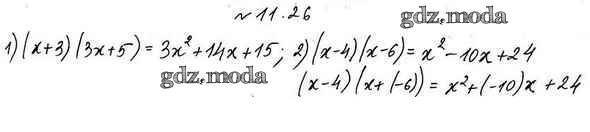 № 11.26
gdz.moda
1) (x+3)(3x+5) = 3x²+14x+15; 2) (x-4)(x-6) = x²-10x+24
gdz.moda
(x-4)(x+(-6)) = x²+(-10)x+24